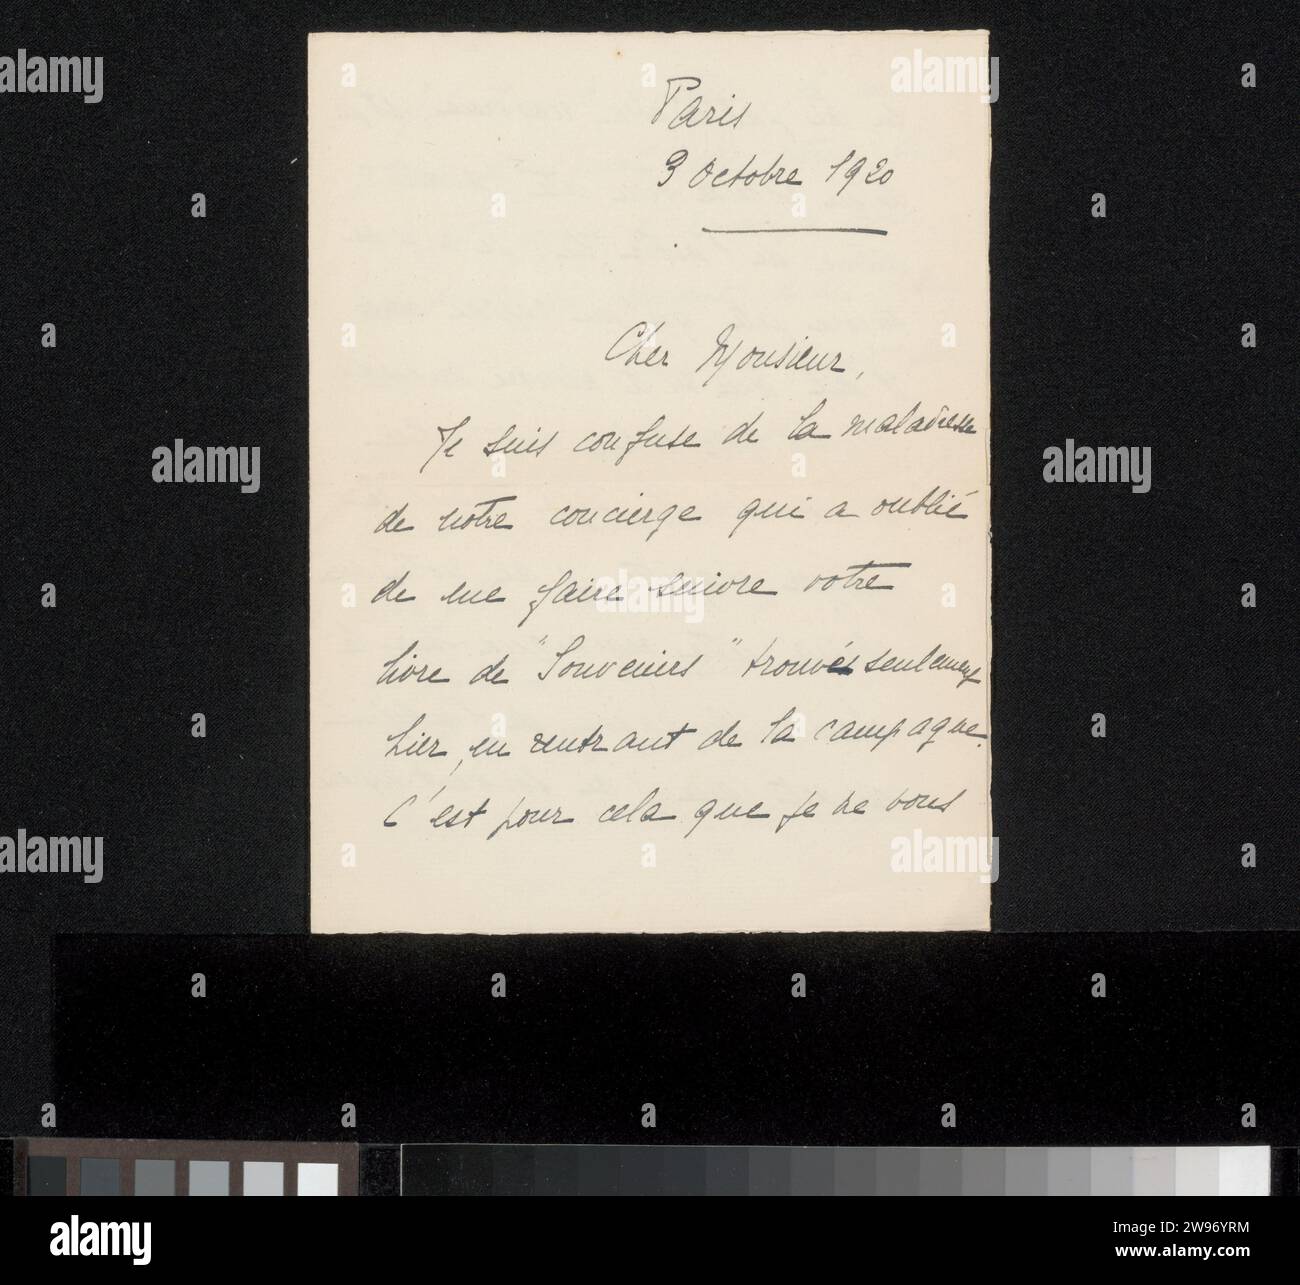 Paris
3 Octobre 1920
Cher Monsieur,
Je suis confuse de la maladresse
de notre concierge qui a oublié
de me faire suivre votre
livre de "Souvenirs" trouvés seulement
hier, en rentrant de la campagne.
C'est pour cela que je ne vous
alamy
a
alamy
Image ID: 2W96YRM
www.alamy.com